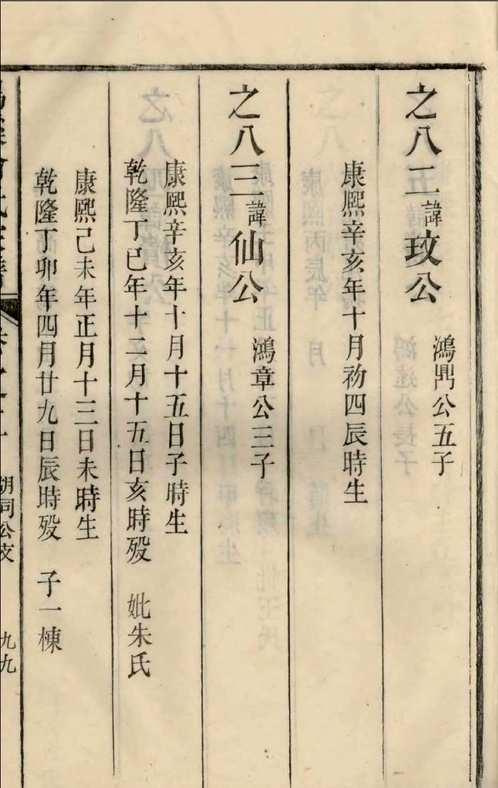 之八二諱玟公 鴻鼎公五子
康熙辛亥年十月初四辰時生
之八三諱仙公 鴻章公三子
康熙辛亥年十月十五日子時生
乾隆丁巳年十二月十五日亥時歿 妣朱氏
康熙己未年正月十三日未時生
乾隆丁卯年四月廿九日辰時歿 子一棟
胡同公支 九九